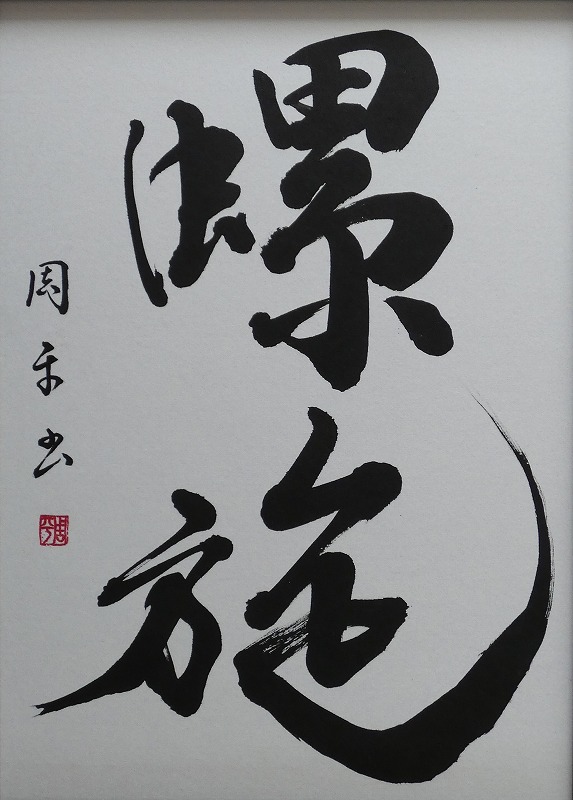 螺旋
周平書